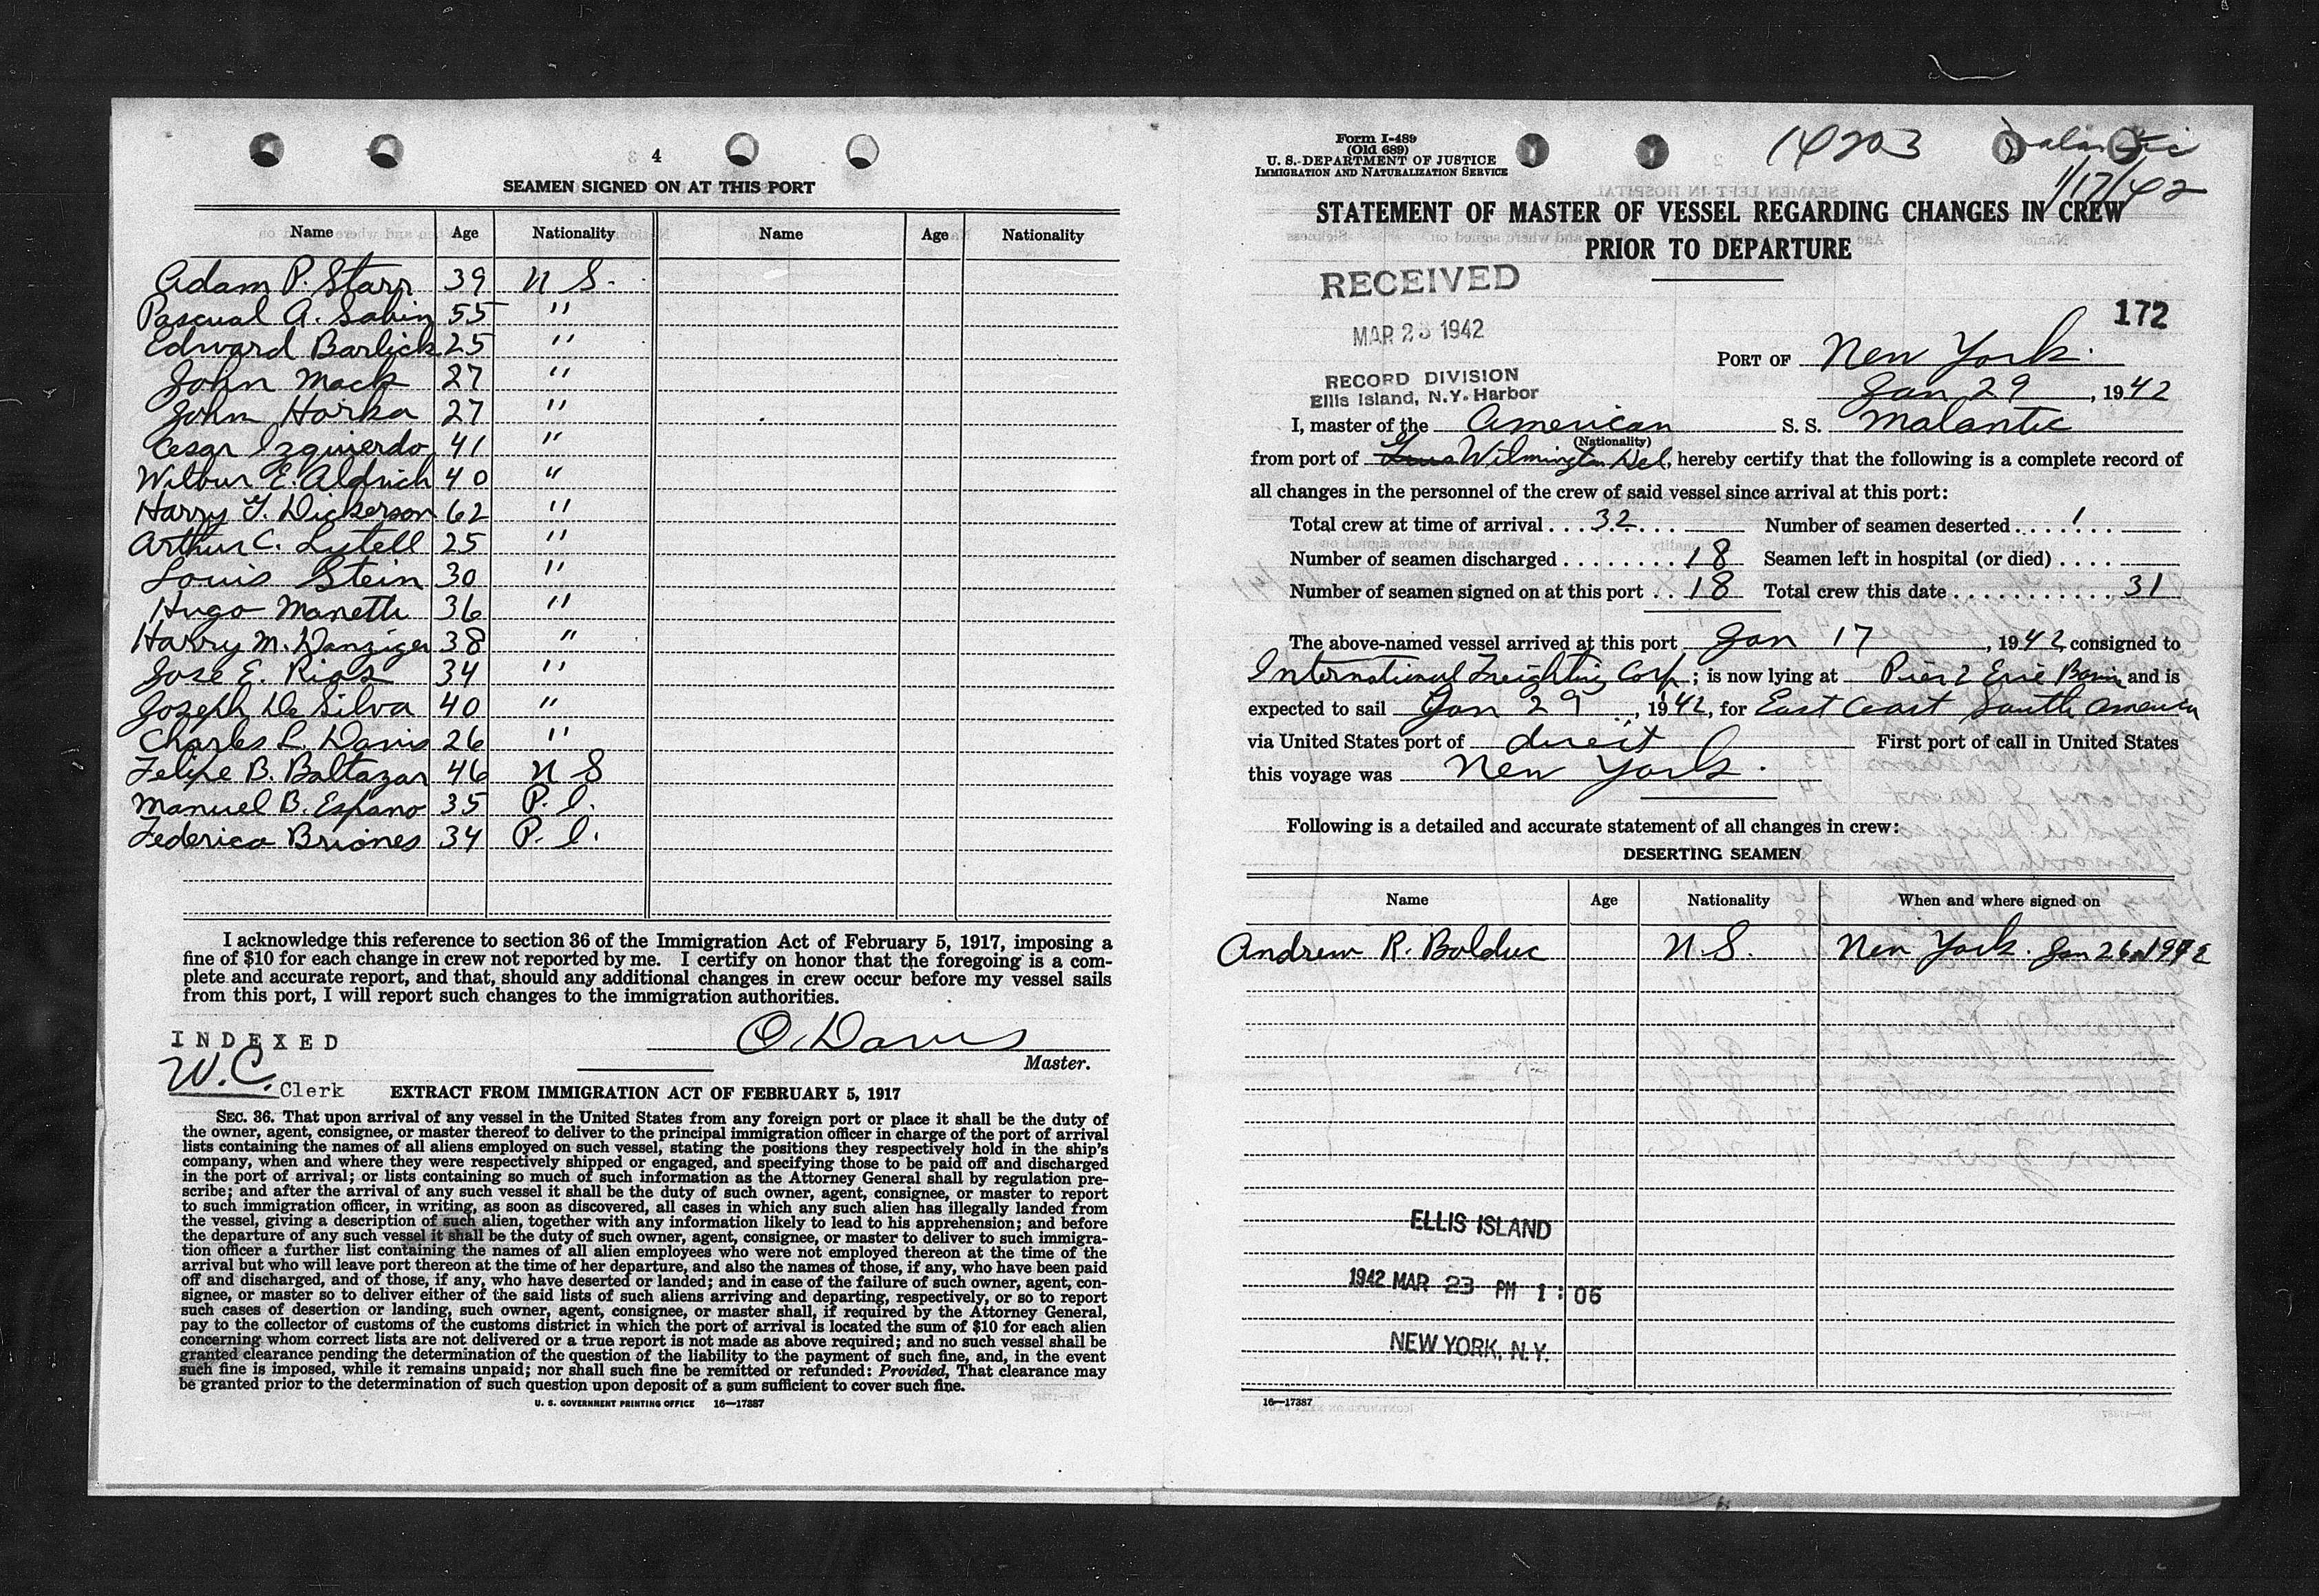 4
SEAMEN SIGNED ON AT THIS PORT
Name Age Nationality Name Age Nationality
Adam P. Starr 39 U S.
Pascual A. Sabin 55 "
Edward Barlick 25 "
John Mack 27 "
John Horka 27 "
Cesar Izquierdo 41 "
Wilbur E. Aldrich 40 "
Harry Y. Dickerson 62 "
Arthur C. Lytell 25 "
Louis Stein 30 "
Hugo Manetti 36 "
Harry M. Danziger 38 "
Jose E. Rios 34 "
Joseph De Silva 40 "
Charles L. Davis 26 "
Felipe B. Baltazar 46 U S
Manuel B. Espano 35 P. I.
Federico Briones 34 P. I.
I acknowledge this reference to section 36 of the Immigration Act of February 5, 1917, imposing a
fine of $10 for each change in crew not reported by me. I certify on honor that the foregoing is a com-
plete and accurate report, and that, should any additional changes in crew occur before my vessel sails
from this port, I will report such changes to the immigration authorities.
INDEXED
O. Davis
Master.
W.C. Clerk
EXTRACT FROM IMMIGRATION ACT OF FEBRUARY 5, 1917
SEC. 36. That upon arrival of any vessel in the United States from any foreign port or place it shall be the duty of
the owner, agent, consignee, or master thereof to deliver to the principal immigration officer in charge of the port of arrival
lists containing the names of all aliens employed on such vessel, stating the positions they respectively hold in the ship's
company, when and where they were respectively shipped or engaged, and specifying those to be paid off and discharged
in the port of arrival; or lists containing so much of such information as the Attorney General shall by regulation pre-
scribe; and after the arrival of any such vessel it shall be the duty of such owner, agent, consignee, or master to report
to such immigration officer, in writing, as soon as discovered, all cases in which any such alien has illegally landed from
the vessel, giving a description of such alien, together with any information likely to lead to his apprehension; and before
the departure of any such vessel it shall be the duty of such owner, agent, consignee, or master to deliver to such immigra-
tion officer a further list containing the names of all alien employees who were not employed thereon at the time of the
arrival but who will leave port thereon at the time of her departure, and also the names of those, if any, who have been paid
off and discharged, and of those, if any, who have deserted or landed; and in case of the failure of such owner, agent, con-
signee, or master so to deliver either of the said lists of such aliens arriving and departing, respectively, or so to report
such cases of desertion or landing, such owner, agent, consignee, or master shall, if required by the Attorney General,
pay to the collector of customs of the customs district in which the port of arrival is located the sum of $10 for each alien
concerning whom correct lists are not delivered or a true report is not made as above required; and no such vessel shall be
granted clearance pending the determination of the question of the liability to the payment of such fine, and, in the event
such fine is imposed, while it remains unpaid; nor shall such fine be remitted or refunded: Provided, That clearance may
be granted prior to the determination of such question upon deposit of a sum sufficient to cover such fine.
U. S. GOVERNMENT PRINTING OFFICE 16—17387
Form I-489
(Old 689)
U. S. DEPARTMENT OF JUSTICE
IMMIGRATION AND NATURALIZATION SERVICE
14203
1/17/42
STATEMENT OF MASTER OF VESSEL REGARDING CHANGES IN CREW
PRIOR TO DEPARTURE
RECEIVED
MAR 23 1942
RECORD DIVISION
Ellis Island, N.Y. Harbor
172
PORT OF New York.
Jan 29, 1942
I, master of the American S. S. Malantic
(Nationality)
from port of Wilmington Del, hereby certify that the following is a complete record of
all changes in the personnel of the crew of said vessel since arrival at this port:
Total crew at time of arrival ... 32 ... Number of seamen deserted .... 1
Number of seamen discharged ........ 18 Seamen left in hospital (or died) ....
Number of seamen signed on at this port .. 18 Total crew this date ........... 31
The above-named vessel arrived at this port Jan 17, 1942, consigned to
International Freighting Corp; is now lying at Pier 2 Erie Basin and is
expected to sail Jan 29, 1942, for East Coast South America
via United States port of direct First port of call in United States
this voyage was New York.
Following is a detailed and accurate statement of all changes in crew:
DESERTING SEAMEN
Name Age Nationality When and where signed on
Andrew R. Bolduc U.S. New York. Jan 26 1942
ELLIS ISLAND
1942 MAR 23 PM 1:06
NEW YORK, N.Y.
16—17387